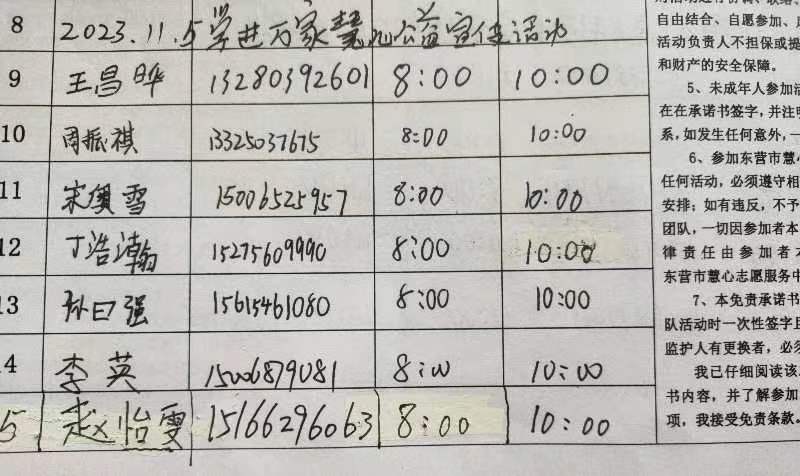 8 2023.11.5学进万家慧心公益宣传活动
9 王昌晔 13280392601 8:00 10:00
10 周振祺 13325037675 8:00 10:00
11 宋雪 15006525957 8:00 10:00
12 丁浩瀚 15275609990 8:00 10:00
13 孙曰强 15615461080 8:00 10:00
14 李英 15006879081 8:00 10:00
5 赵怡雯 15166296063 8:00 10:00
自由结合、自愿参加、
活动负责人不担保或提
和财产的安全保障。
5、未成年人参加活
在在承诺书签字，并注明
系，如发生任何意外，一
6、参加东营市慧心
任何活动，必须遵守相
安排；如有违反，不予
团队，一切因参加者本
律责任由参加者本
东营市慧心志愿服务中
7、本免责承诺书
队活动时一次性签字且
监护人有更换者，必须
我已仔细阅读该
书内容，并了解参加
项，我接受免责条款。